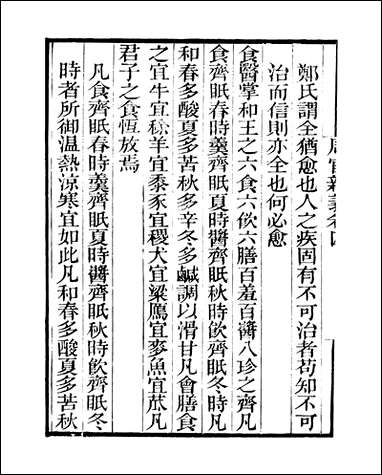 周官新義卷四
鄭氏謂全猶愈也人之疾固有不可治者苟知不可
治而信則亦全也何必愈
食醫掌和王之六食六飲六膳百羞百醬八珍之齊凡
食齊眡春時羹齊眡夏時醬齊眡秋時飲齊眡冬時凡
和春多酸夏多苦秋多辛冬多鹹調以滑甘凡會膳食
之宜牛宜稌羊宜黍豕宜稷犬宜粱鴈宜麥魚宜苽凡
君子之食恆放焉
凡食齊眡春時羹齊眡夏時醬齊眡秋時飲齊眡冬
時者所御温熱涼寒宜如此凡和春多酸夏多苦秋